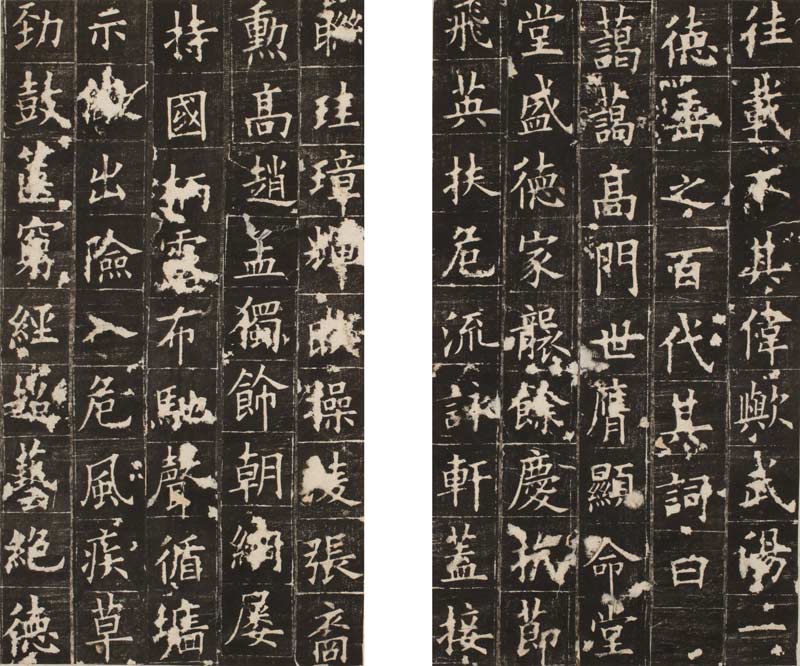 往載不其偉歟武湯一
德垂之百代其詞曰
藹藹高門世膺顯命堂
堂盛德家襲餘慶抗節
飛英扶危流詠軒蓋接
聯珪璋輝映操陵張裔
勳高趙孟獨飾朝綱屢
持國柄露布馳聲循墉
示出險入危風疾草
勁鼓篋窮經超藝絕德